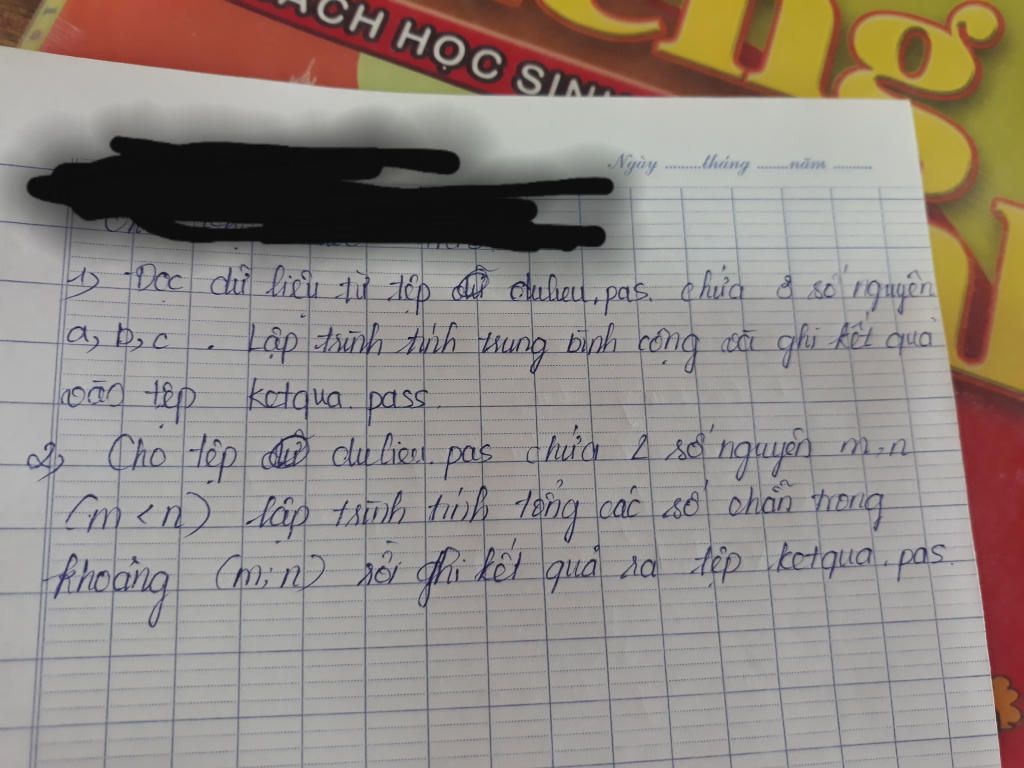 ÁCH HỌC SINH
Ngày ........tháng .......năm .........
1) Đọc dữ liệu từ tệp dulieu.pas. chứa 3 số nguyên
a, b, c . Lập trình tính trung bình cộng và ghi kết quả
vào tệp ketqua.pass
2) Cho tệp dulieu.pas chứa 2 số nguyên m;n
(m<n) lập trình tính tổng các số chẵn trong
khoảng (m;n) rồi ghi kết quả ra tệp ketqua.pas.